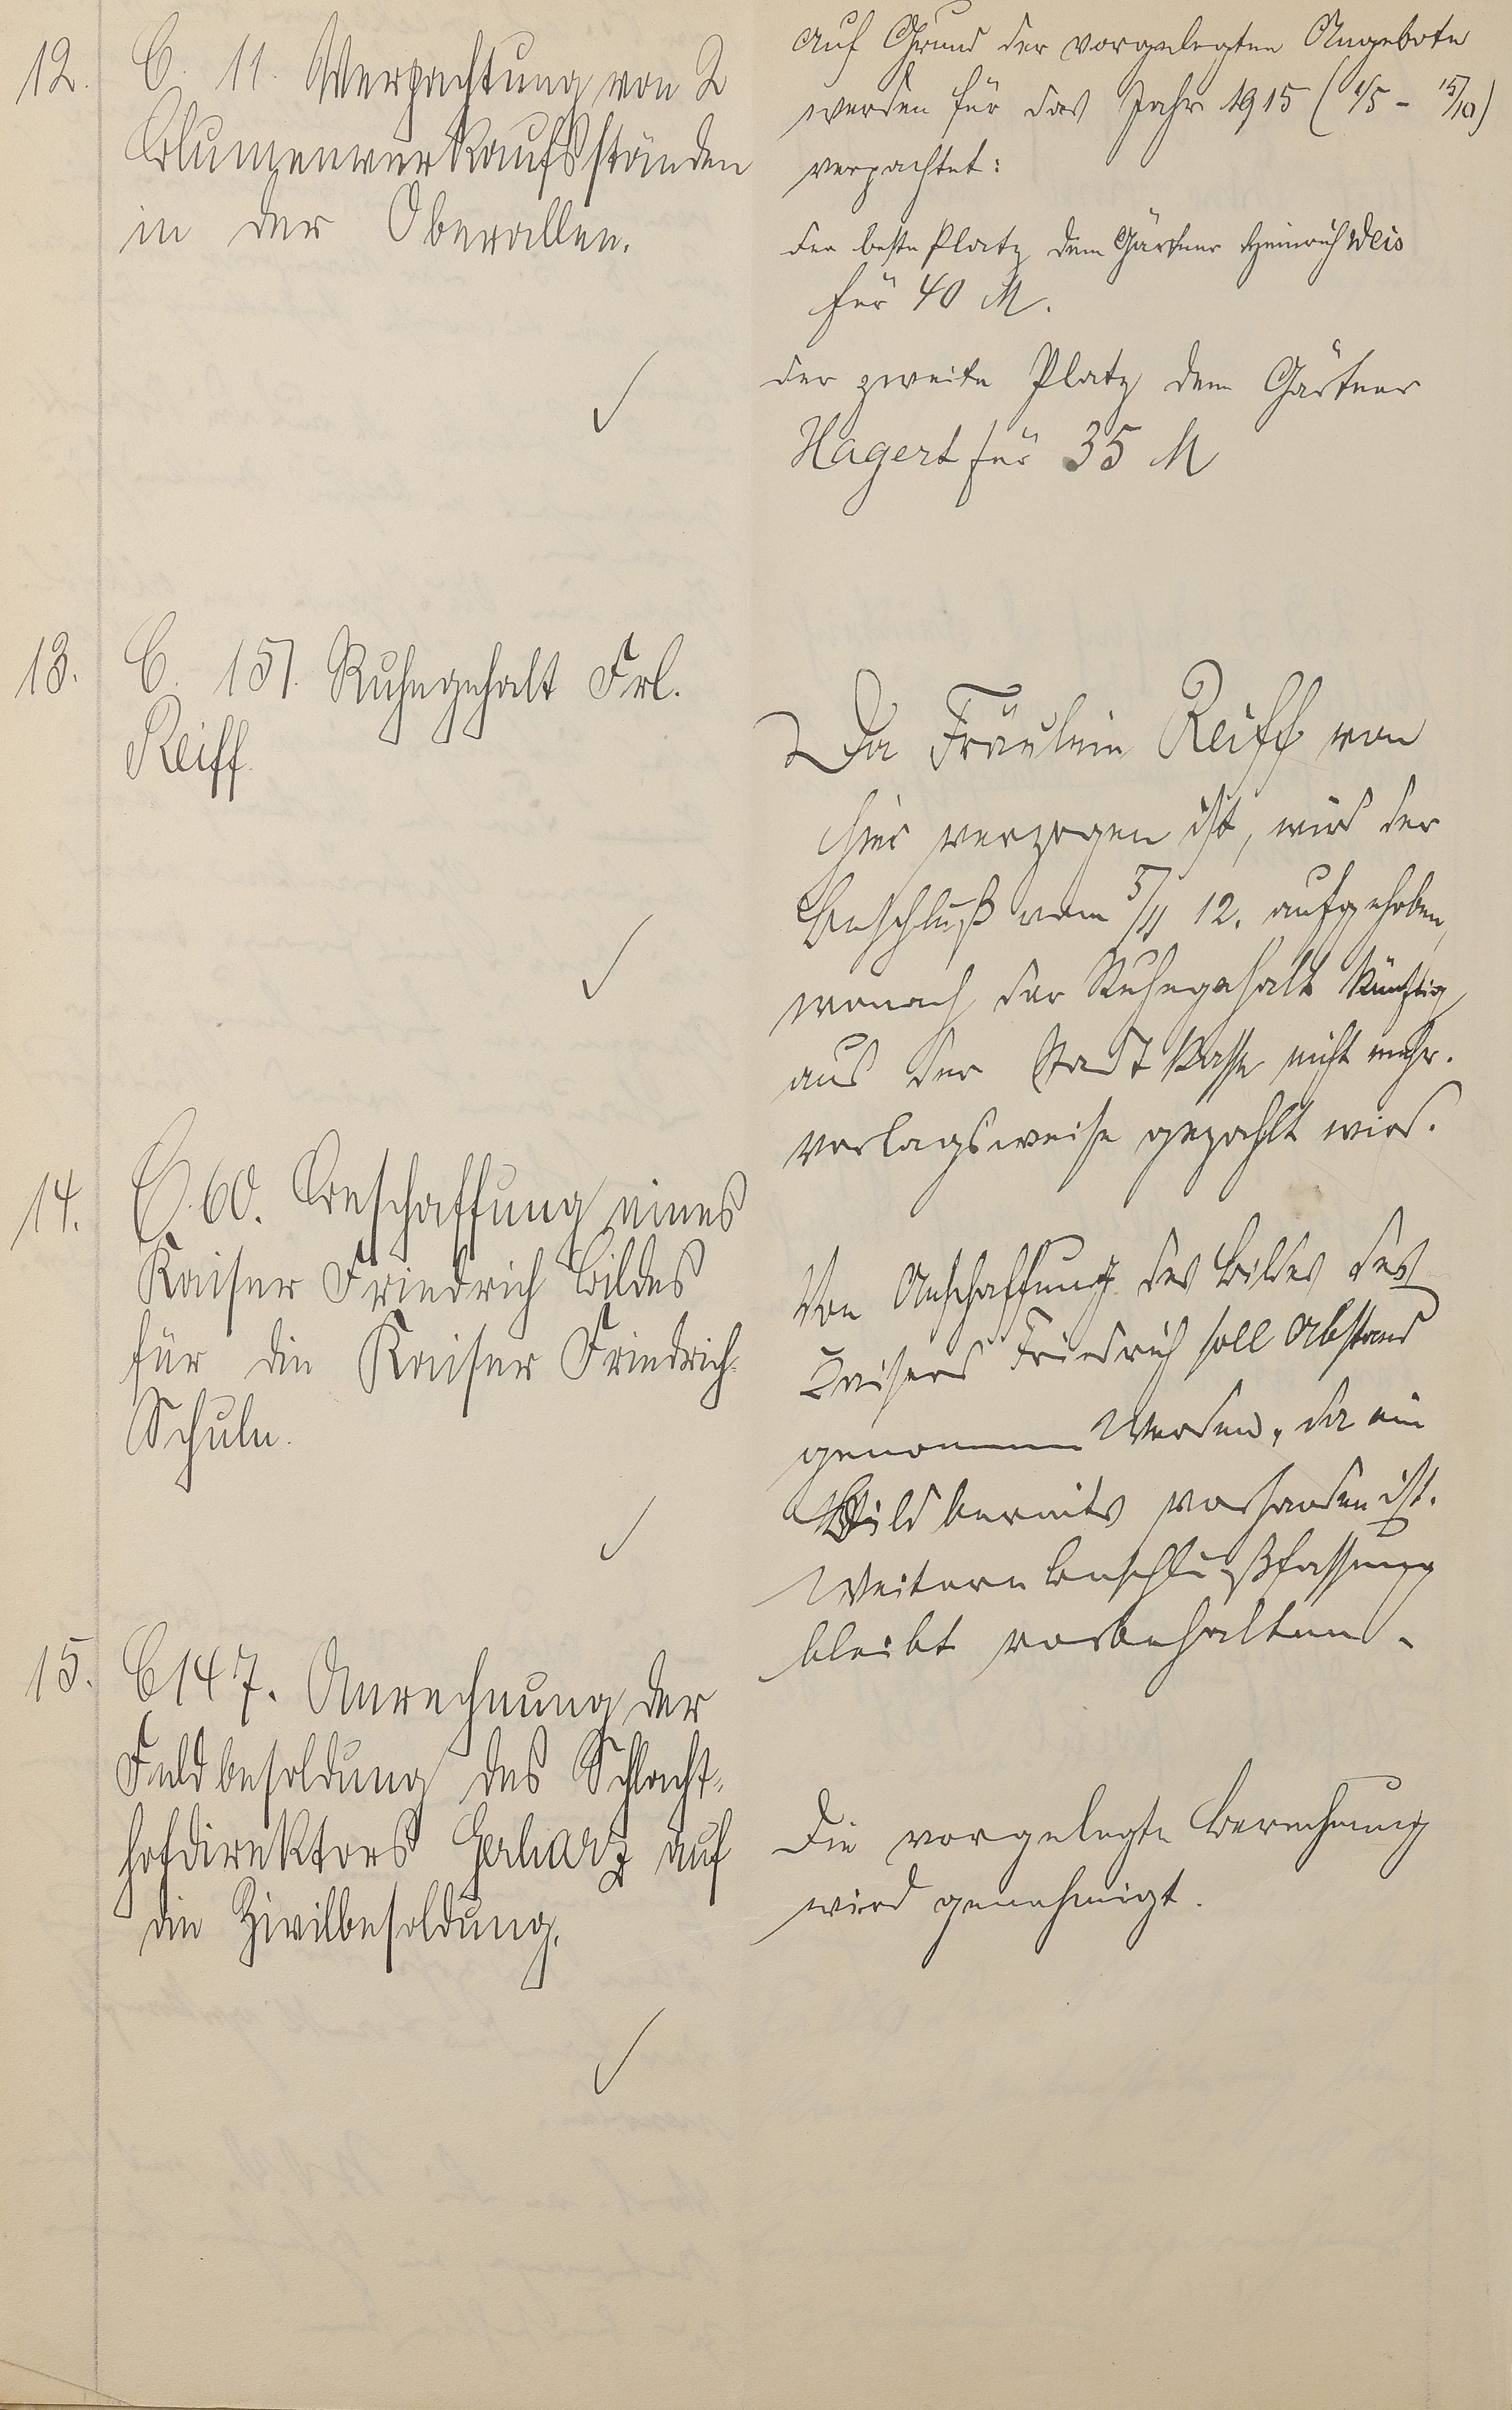 12.
C. 11. Verpachtung von 2
Blumenverkaufsständen
in der Oberallee.
Auf Grund der vorgelegten Angebote
werden für das Jahr 1915 (1/5 - 15/10)
verpachtet:
der beste Platz dem Gärtner Heinrich Weis
für 40 M.
der zweite Platz dem Gärtner
Hagert für 35 M
13.
C. 151. Ruhegehalt Frl.
Reiff.
Da Fräulein Reiff von
hier verzogen ist, wird der
Beschluß vom 5/11 12. aufgehoben,
wonach der Ruhegehalt künftig
aus der Stadtkasse nicht mehr
vorlagsweise gezahlt wird.
14.
C. 60. Beschaffung eines
Kaiser Friedrich Bildes
für die Kaiser Friedrich-
Schule.
Von Anschaffung des Bildes des
Kaisers Friedrich soll Abstand
genommen werden, da ein
Bild bereits vorhanden ist.
Weitere Beschlußfassung
bleibt vorbehalten.
15.
C 147. Anrechnung der
Feldbesoldung des Schlacht-
hofdirektors auf
die Zivilbesoldung.
Die vorgelegte Berechnung
wird genehmigt.